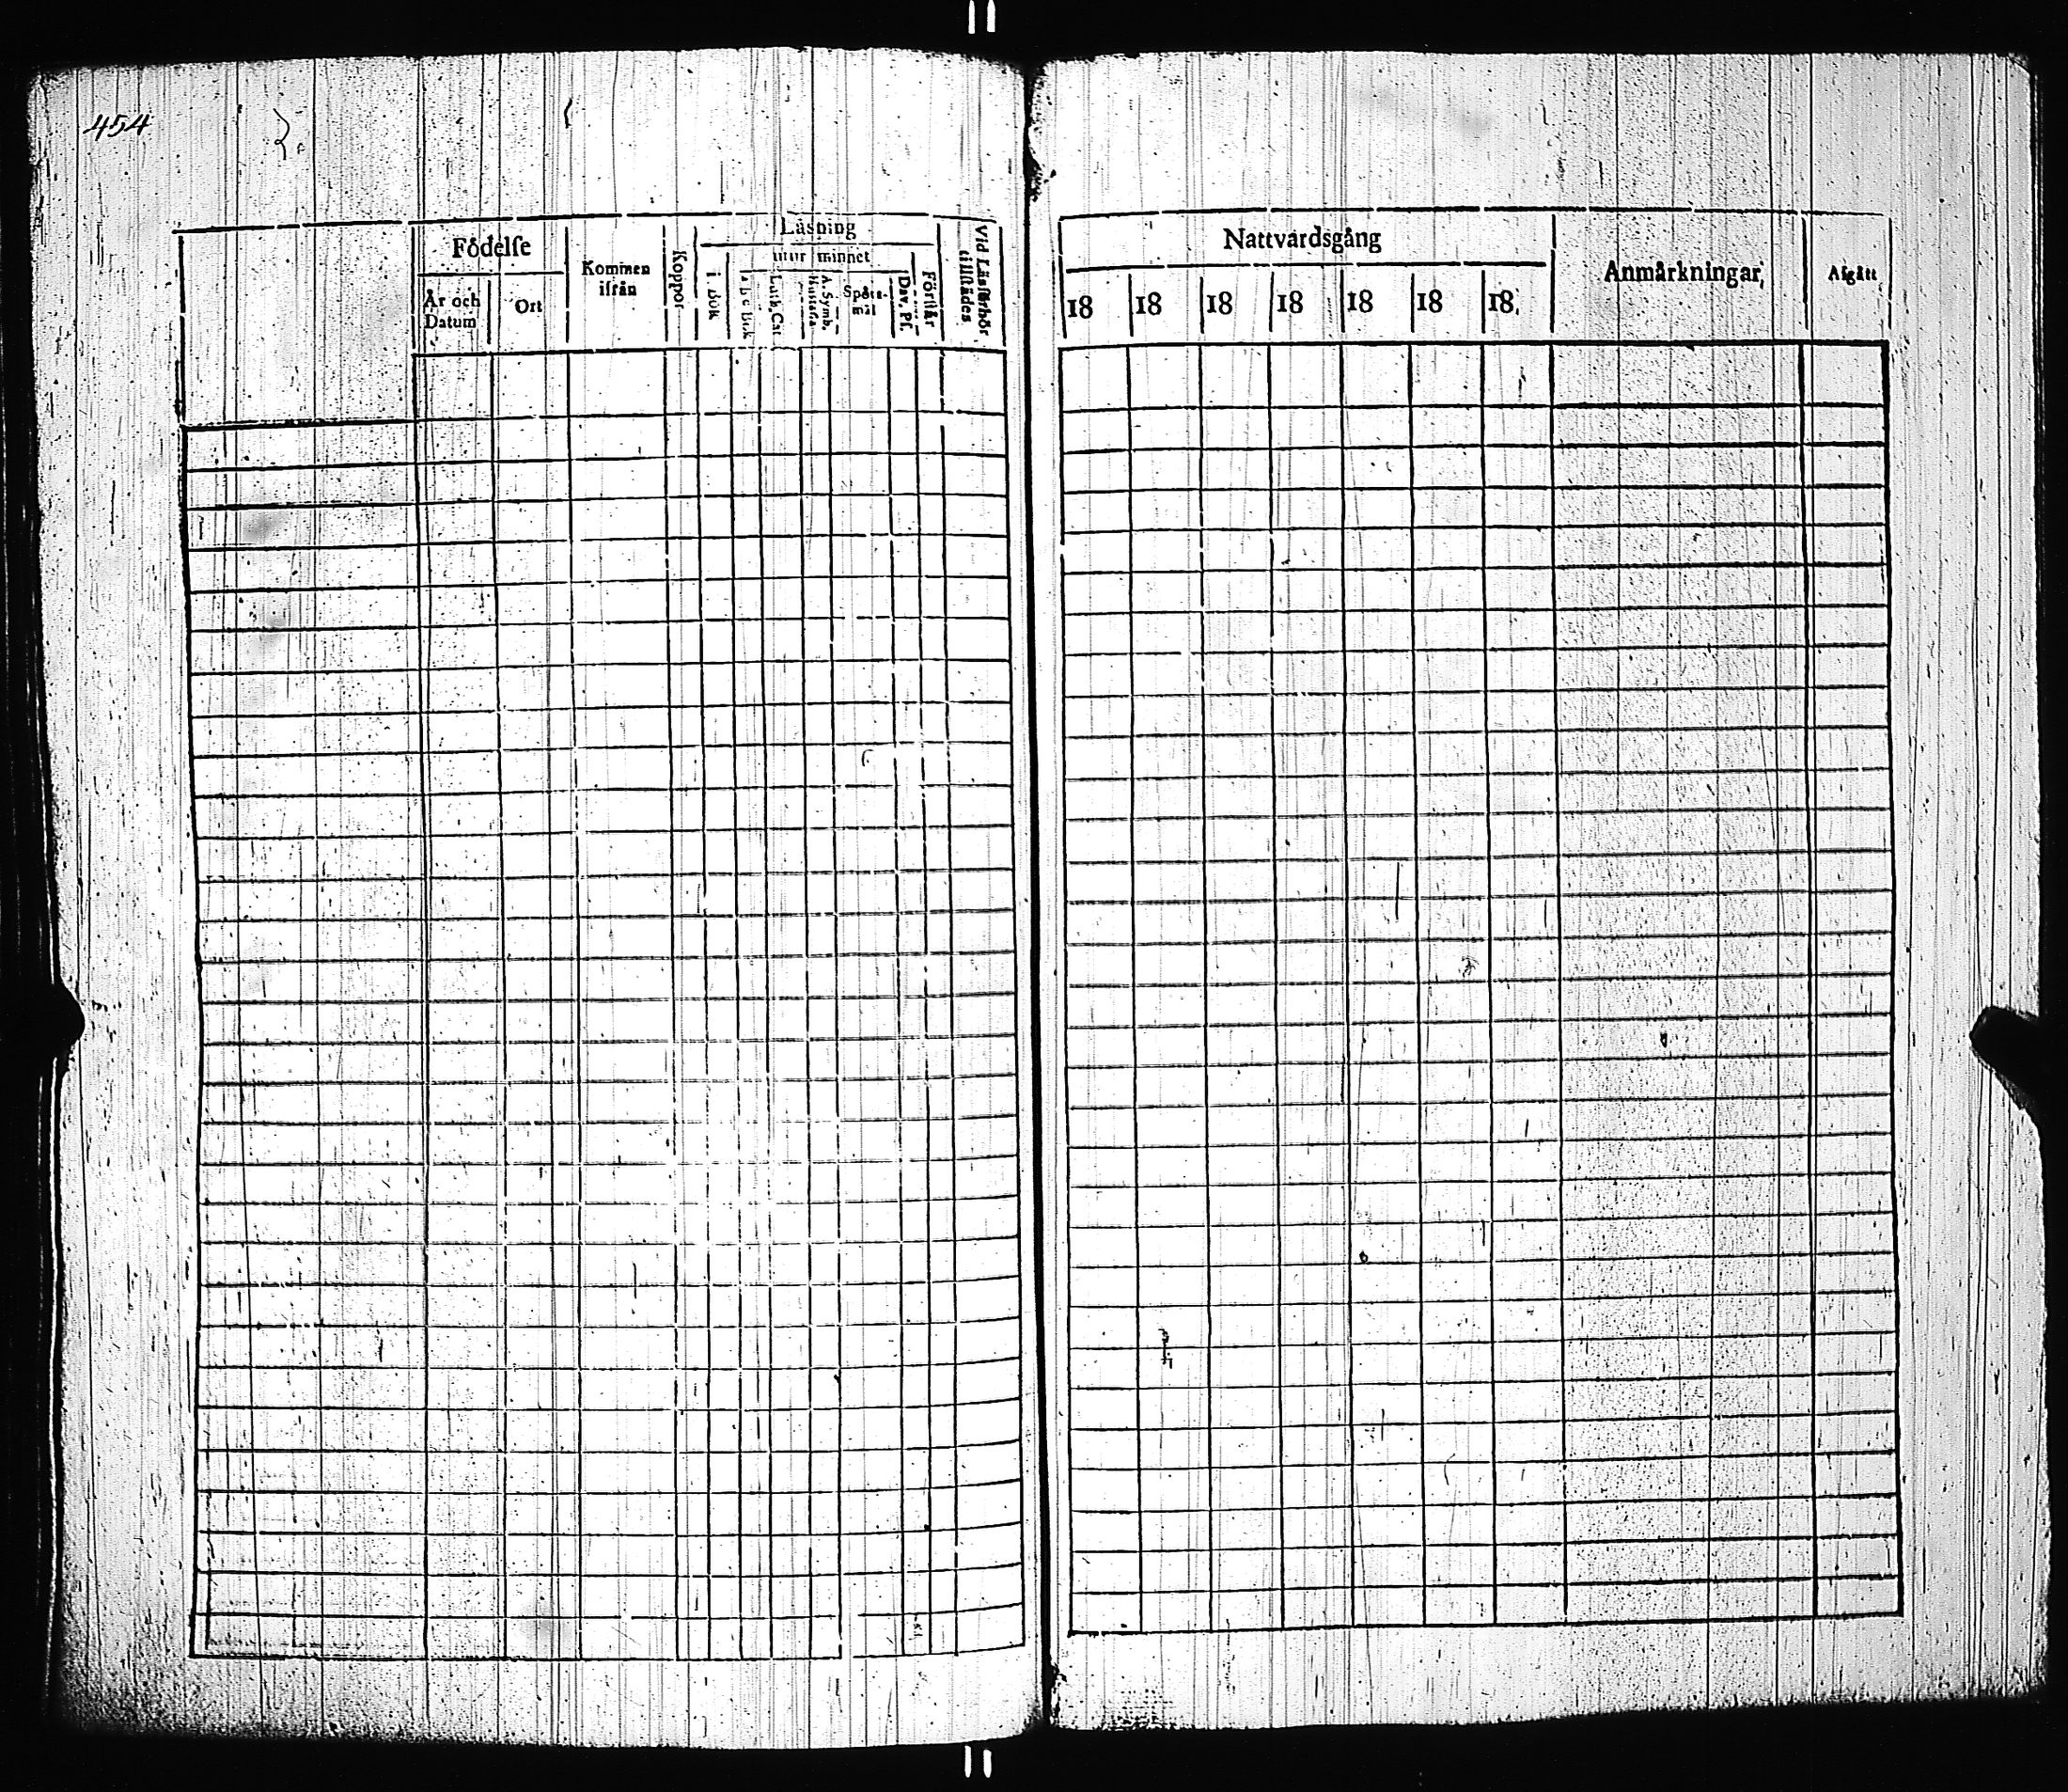 454
Födelse
År och Datum
Ort
Kommen ifrån
Koppor
Läsning
utur minnet
i Bok
Luth. Cat
A. Symb.
Hustafla
Spörs-mål
Dav. Ps.
Förstår
Vid Läsförhör tillstädes
Nattvardsgång
18 18 18 18 18 18 18
Anmärkningar
Afgått